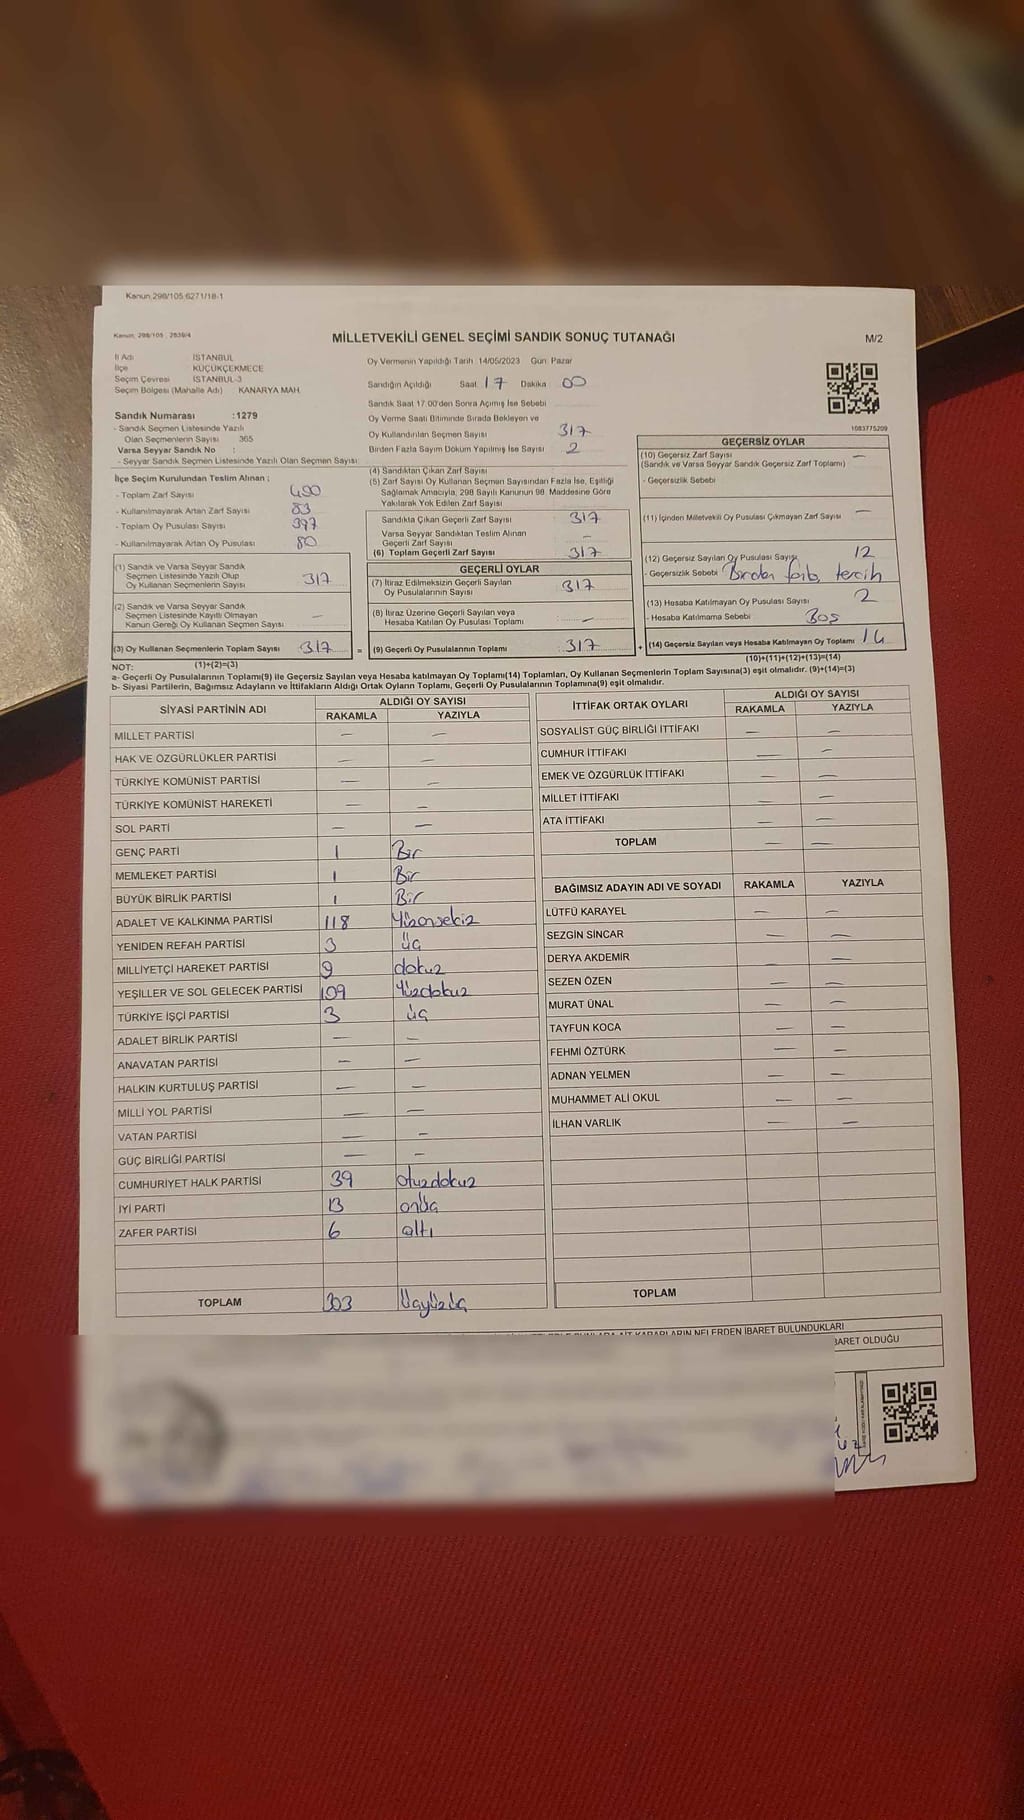 Kanun: 298/105 6271/18-1
Kanun: 298/105 , 2839/4
MİLLETVEKİLİ GENEL SEÇİMİ SANDIK SONUÇ TUTANAĞI
M/2
İl Adı İSTANBUL
İlçe KÜÇÜKÇEKMECE
Seçim Çevresi İSTANBUL-3
Seçim Bölgesi (Mahalle Adı) : KANARYA MAH.
Sandık Numarası :1279
- Sandık Seçmen Listesinde Yazılı
Olan Seçmenlerin Sayısı 365
Varsa Seyyar Sandık No :
- Seyyar Sandık Seçmen Listesinde Yazılı Olan Seçmen Sayısı:
İlçe Seçim Kurulundan Teslim Alınan ;
- Toplam Zarf Sayısı 400
- Kullanılmayarak Artan Zarf Sayısı 83
- Toplam Oy Pusulası Sayısı 397
- Kullanılmayarak Artan Oy Pusulası 80
(1) Sandık ve Varsa Seyyar Sandık
Seçmen Listesinde Yazılı Olup
Oy Kullanan Seçmenlerin Sayısı 317
(2) Sandık ve Varsa Seyyar Sandık
Seçmen Listesinde Kayıtlı Olmayan
Kanun Gereği Oy Kullanan Seçmen Sayısı : —
(3) Oy Kullanan Seçmenlerin Toplam Sayısı : 317 =
(1)+(2)=(3)
Oy Vermenin Yapıldığı Tarih :14/05/2023 Gün: Pazar
Sandığın Açıldığı Saat 17 Dakika 00
Sandık Saat 17.00'den Sonra Açılmış İse Sebebi
Oy Verme Saati Bitiminde Sırada Bekleyen ve
Oy Kullandırılan Seçmen Sayısı 317
Birden Fazla Sayım Döküm Yapılmış İse Sayısı 2
(4) Sandıktan Çıkan Zarf Sayısı
(5) Zarf Sayısı Oy Kullanan Seçmen Sayısından Fazla İse, Eşitliği
Sağlamak Amacıyla; 298 Sayılı Kanunun 98. Maddesine Göre
Yakılarak Yok Edilen Zarf Sayısı
Sandıkta Çıkan Geçerli Zarf Sayısı 317
Varsa Seyyar Sandıktan Teslim Alınan
Geçerli Zarf Sayısı —
(6) Toplam Geçerli Zarf Sayısı 317
GEÇERLİ OYLAR
(7) İtiraz Edilmeksizin Geçerli Sayılan
Oy Pusulalarının Sayısı : 317
(8) İtiraz Üzerine Geçerli Sayılan veya
Hesaba Katılan Oy Pusulası Toplamı : —
(9) Geçerli Oy Pusulalarının Toplamı : 317 +
1083775209
GEÇERSİZ OYLAR
(10) Geçersiz Zarf Sayısı —
(Sandık ve Varsa Seyyar Sandık Geçersiz Zarf Toplamı)
- Geçersizlik Sebebi
(11) İçinden Milletvekili Oy Pusulası Çıkmayan Zarf Sayısı —
(12) Geçersiz Sayılan Oy Pusulası Sayısı 12
- Geçersizlik Sebebi tercih
(13) Hesaba Katılmayan Oy Pusulası Sayısı 2
- Hesaba Katılmama Sebebi Boş
(14) Geçersiz Sayılan veya Hesaba Katılmayan Oy Toplamı 14
(10)+(11)+(12)+(13)=(14)
NOT:
a- Geçerli Oy Pusulalarının Toplamı(9) ile Geçersiz Sayılan veya Hesaba katılmayan Oy Toplamı(14) Toplamları, Oy Kullanan Seçmenlerin Toplam Sayısına(3) eşit olmalıdır. (9)+(14)=(3)
b- Siyasi Partilerin, Bağımsız Adayların ve İttifakların Aldığı Ortak Oyların Toplamı, Geçerli Oy Pusulalarının Toplamına(9) eşit olmalıdır.
SİYASİ PARTİNİN ADI ALDIĞI OY SAYISI
RAKAMLA YAZIYLA
MİLLET PARTİSİ — —
HAK VE ÖZGÜRLÜKLER PARTİSİ — —
TÜRKİYE KOMÜNİST PARTİSİ — —
TÜRKİYE KOMÜNİST HAREKETİ — —
SOL PARTİ — —
GENÇ PARTİ 1 Bir
MEMLEKET PARTİSİ 1 Bir
BÜYÜK BİRLİK PARTİSİ 1 Bir
ADALET VE KALKINMA PARTİSİ 118 Yüzonsekiz
YENİDEN REFAH PARTİSİ 3 üç
MİLLİYETÇİ HAREKET PARTİSİ 9 dokuz
YEŞİLLER VE SOL GELECEK PARTİSİ 109 Yüzdokuz
TÜRKİYE İŞÇİ PARTİSİ 3 üç
ADALET BİRLİK PARTİSİ — —
ANAVATAN PARTİSİ — —
HALKIN KURTULUŞ PARTİSİ — —
MİLLİ YOL PARTİSİ — —
VATAN PARTİSİ — —
GÜÇ BİRLİĞİ PARTİSİ — —
CUMHURİYET HALK PARTİSİ 39 otuzdokuz
İYİ PARTİ 13 onüç
ZAFER PARTİSİ 6 altı
TOPLAM 303 Üçyüzüç
İTTİFAK ORTAK OYLARI ALDIĞI OY SAYISI
RAKAMLA YAZIYLA
SOSYALİST GÜÇ BİRLİĞİ İTTİFAKI — —
CUMHUR İTTİFAKI — —
EMEK VE ÖZGÜRLÜK İTTİFAKI — —
MİLLET İTTİFAKI — —
ATA İTTİFAKI — —
TOPLAM — —
BAĞIMSIZ ADAYIN ADI VE SOYADI RAKAMLA YAZIYLA
LÜTFÜ KARAYEL — —
SEZGİN SİNCAR — —
DERYA AKDEMİR — —
SEZEN ÖZEN — —
MURAT ÜNAL — —
TAYFUN KOCA — —
FEHMİ ÖZTÜRK — —
ADNAN YELMEN — —
MUHAMMET ALİ OKUL — —
İLHAN VARLIK — —
TOPLAM
KARARLARIN NELERDEN İBARET BULUNDUKLARI
İBARET OLDUĞU